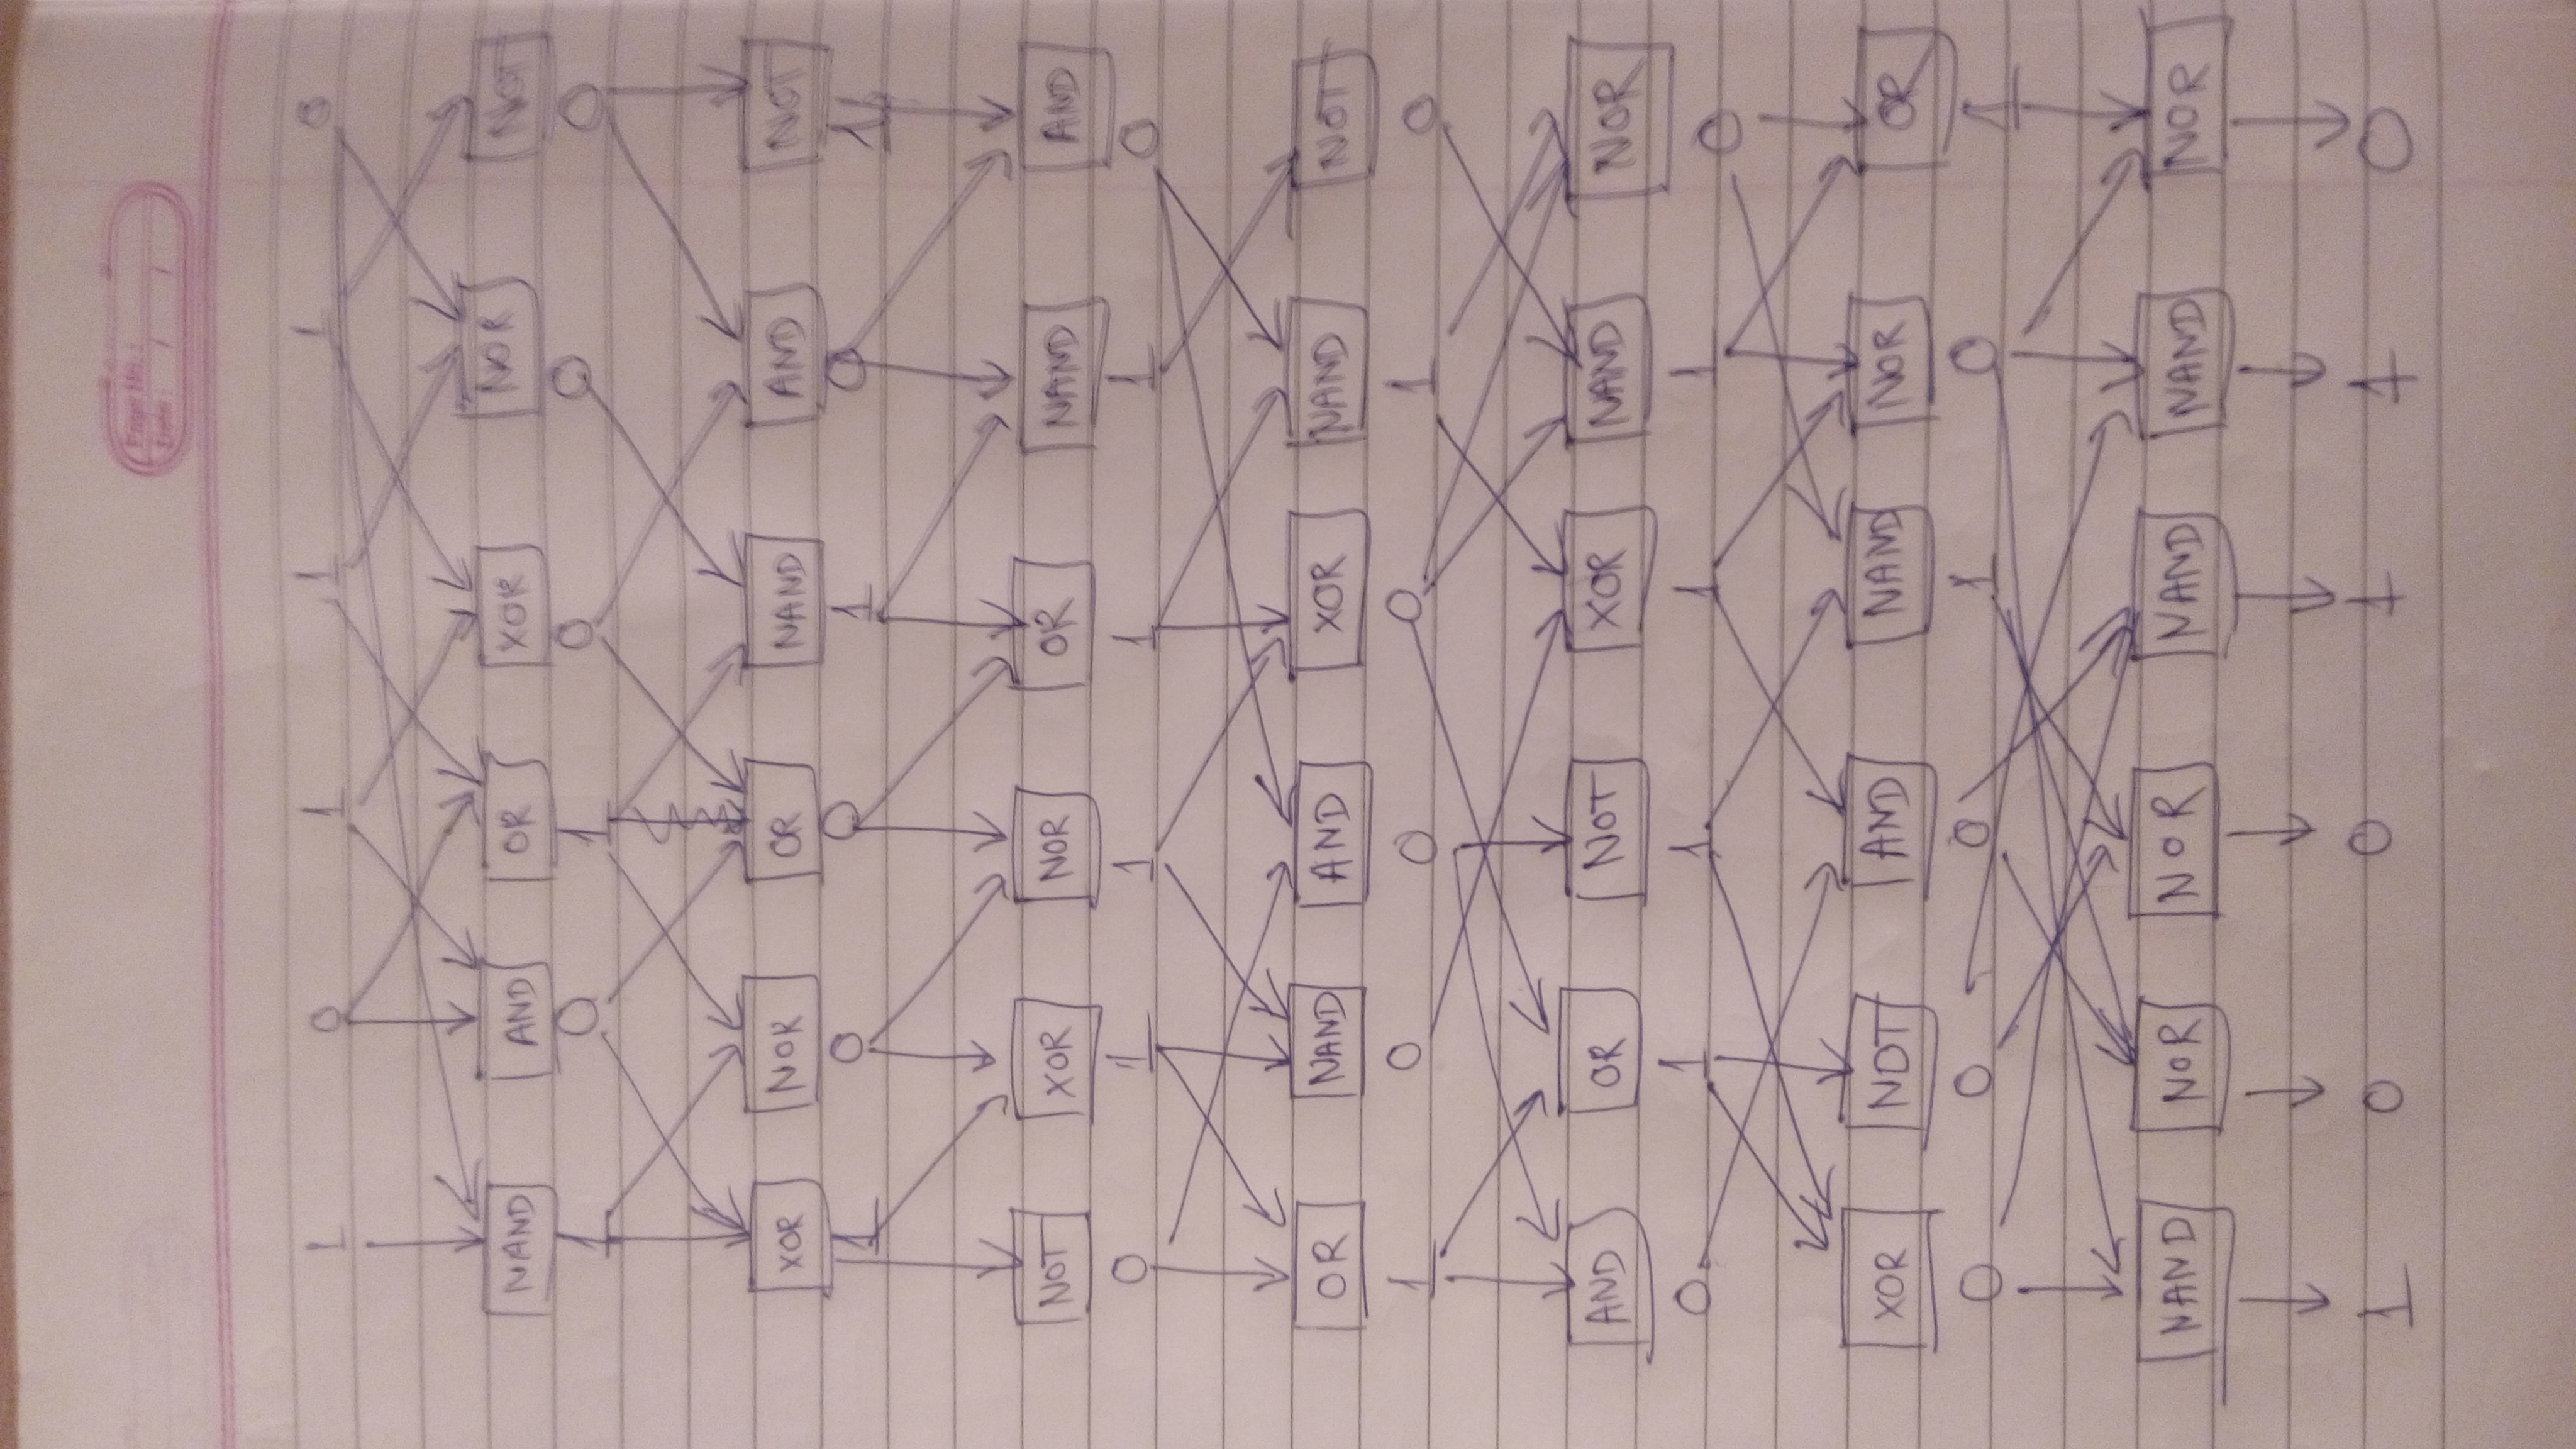 Page No.:
Date: / /
1 0 1 1 1 0
NAND AND OR XOR NOR NOT
1 0 1 0 0 0
XOR NOR OR NAND AND NOT
1 0 0 1 0 1
NOT XOR NOR OR NAND AND
0 1 1 1 1 0
OR NAND AND XOR NAND NOT
1 0 0 0 1 0
AND OR NOT XOR NAND NOR
0 1 1 1 1 0
XOR NOT AND NAND NOR OR
0 0 0 1 0 1
NAND NOR NOR NAND NAND NOR
1 0 0 1 1 0